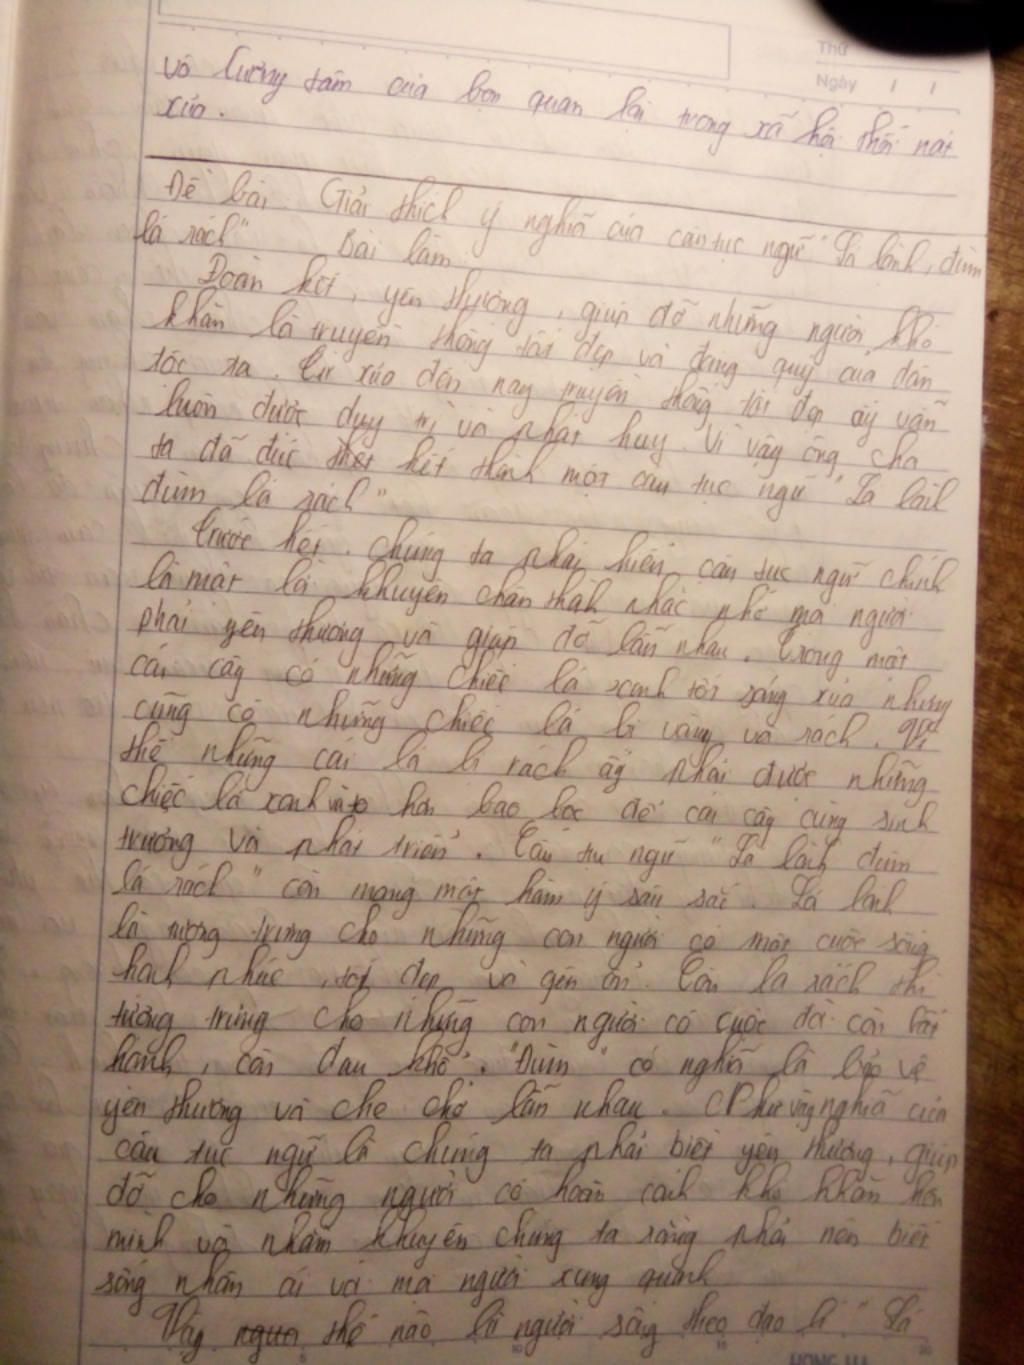 Thứ
Ngày / /
vô lương tâm của bọn quan lại trong xã hội thối nát
xưa.
Đề bài Giải thích ý nghĩa của câu tục ngữ "Lá lành, đùm
lá rách"   Bài làm
Đoàn kết, yên thương, giúp đỡ những người khó
khăn là truyền thống tốt đẹp và đáng quý của dân
tộc ta. Từ xưa đến nay truyền thống tốt đẹp ấy vẫn
luôn được duy trì và phát huy. Vì vậy ông cha
ta đã đúc kết thành một câu tục ngữ "Lá lành
đùm lá rách"
Trước hết. Chúng ta phải hiểu câu tục ngữ chính
là một lời khuyên chân thành nhắc nhở mọi người
phải yên thương và giúp đỡ lẫn nhau. Trong một
cái cây có những chiếc lá xanh tốt nhưng
cũng có những chiếc lá bị vàng và rách. Vì
thế những cái lá bị rách ấy phải được những
chiếc lá xanh hơn bao bọc để cái cây cùng sinh
trưởng và phát triển. Câu tục ngữ "Lá lành đùm
lá rách" còn mang một hàm ý sâu sắc. Lá lành
là tượng trưng cho những con người có một cuộc sống
hạnh phúc, tốt đẹp và yên ổn. Còn lá rách thì
tượng trưng cho những con người có cuộc đời còn bất
hạnh, còn đau khổ. "Đùm" có nghĩa là bảo vệ
yên thương và che chở lẫn nhau. Như vậy nghĩa của
câu tục ngữ là chúng ta phải biết yên thương, giúp
đỡ cho những người có hoàn cảnh khó khăn hơn
mình và nhằm khuyên chúng ta rằng phải nên biết
sống nhân ái với mọi người xung quanh
Vậy thế nào là người sống theo đạo lí "Lá